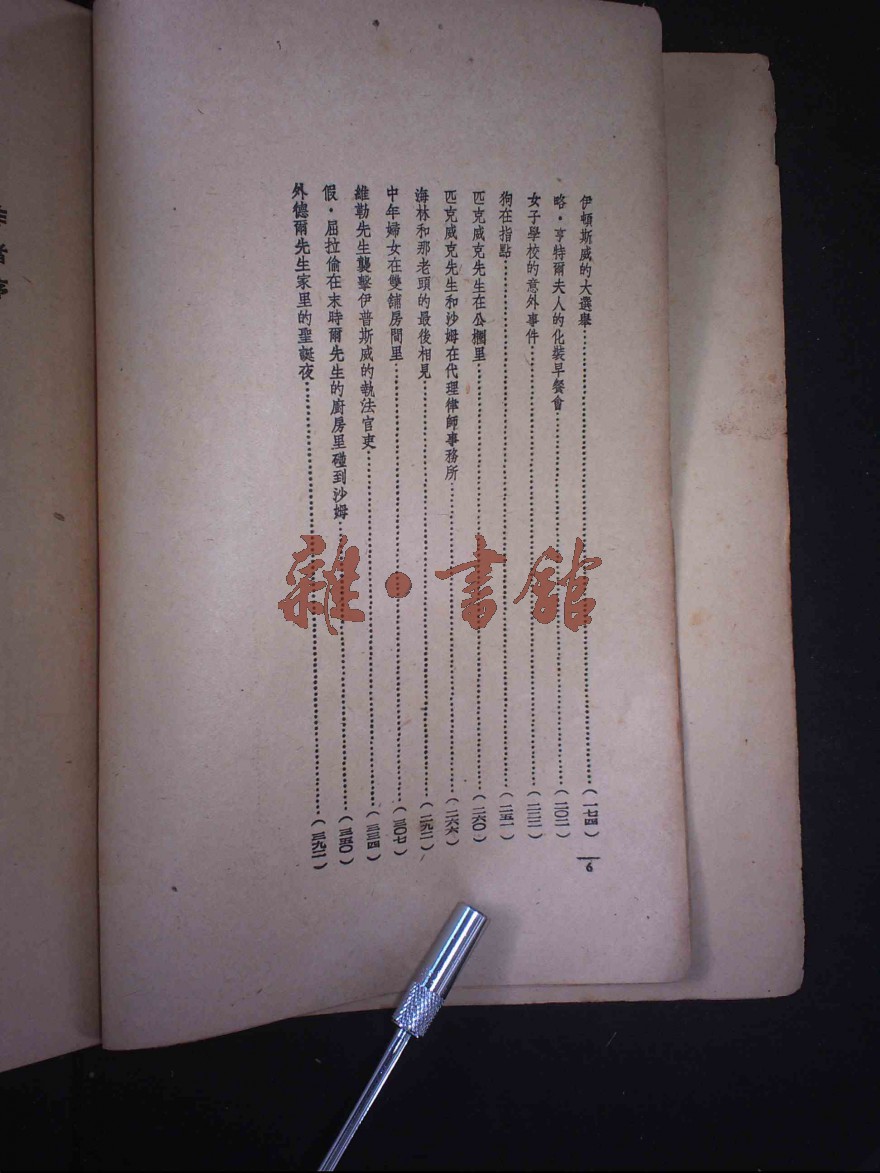 伊頓斯威的大選舉……(一七四)
略·亨特爾夫人的化裝早餐會……(二〇二)
女子學校的意外事件……(二二二)
狗在指點……(二五一)
匹克威克先生在公欄里……(二六〇)
匹克威克先生和沙姆在代理律師事務所……(二六六)
海林和那老頭的最後相見……(二九二)
中年婦女在雙舖房間里……(三〇七)
維勒先生襲擊伊普斯威的執法官吏……(三三四)
假·屈拉倫在末時爾先生的廚房里碰到沙姆……(三五〇)
外德爾先生家里的聖誕夜……(三九二)
6
雜·書館